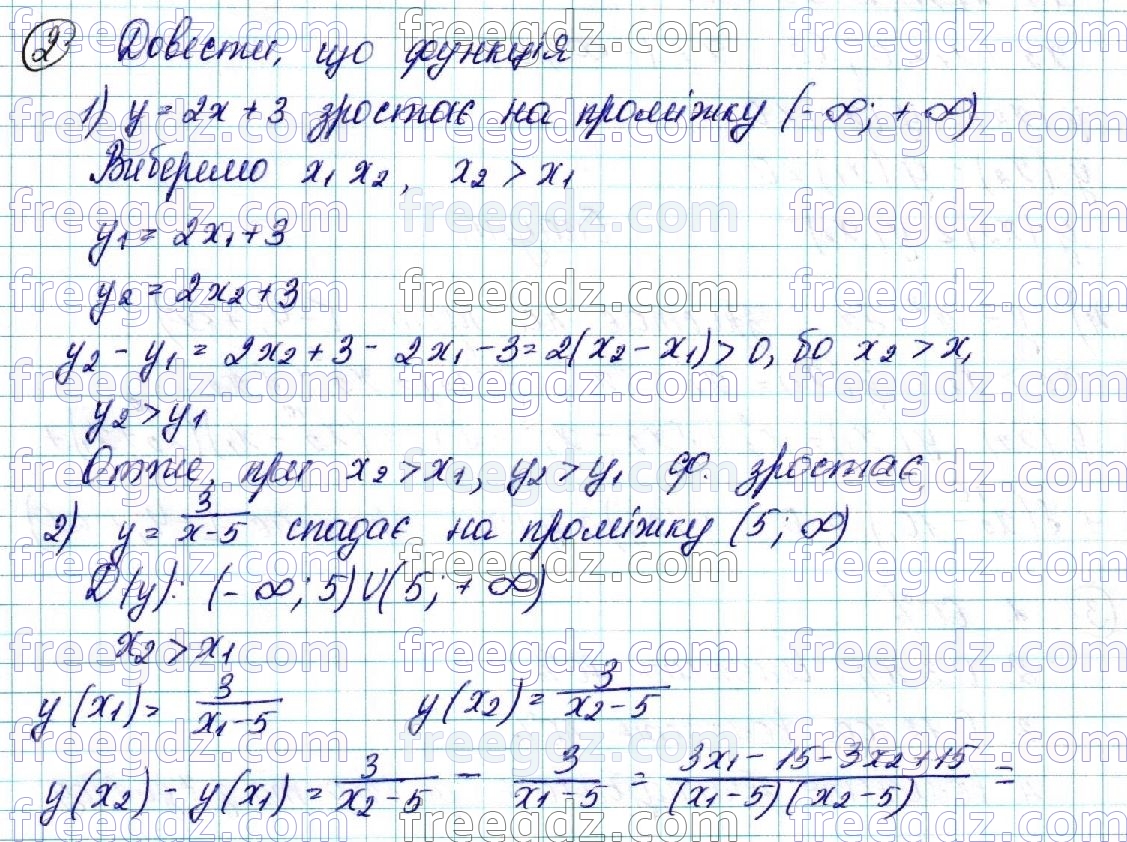 2 Довести, що функція
1) y = 2x + 3 зростає на проміжку (-∞; +∞)
Виберемо x₁ x₂, x₂ > x₁
y₁ = 2x₁ + 3
y₂ = 2x₂ + 3
y₂ - y₁ = 2x₂ + 3 - 2x₁ - 3 = 2(x₂ - x₁) > 0, бо x₂ > x₁
y₂ > y₁
Отже, при x₂ > x₁, y₂ > y₁ ф. зростає
2) y = 3/(x-5) спадає на проміжку (5; ∞)
D(y): (-∞; 5)U(5; +∞)
x₂ > x₁
y(x₁) = 3/(x₁-5) y(x₂) = 3/(x₂-5)
y(x₂) - y(x₁) = 3/(x₂-5) - 3/(x₁-5) = (3x₁ - 15 - 3x₂ + 15)/((x₁-5)(x₂-5)) =
freegdz.com